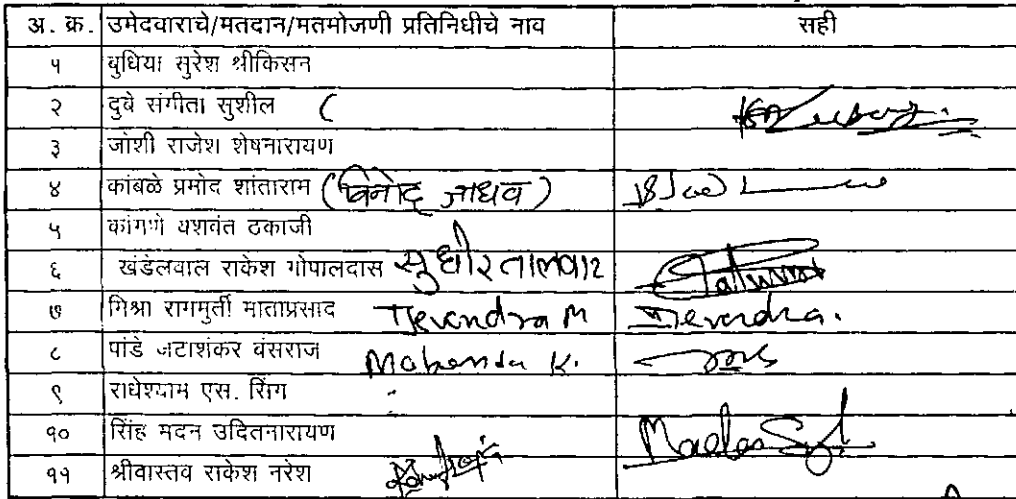 अ. क्र. उमेदवाराचे/मतदान/मतमोजणी प्रतिनिधीचे नाव सही
१ बुधिया सुरेश श्रीकिसन
२ दुबे संगीता सुशील
३ जोशी राजेश शेषनारायण
४ कांबळे प्रमोद शांताराम (विनोद जाधव)
५ कांगणे यशवंत टकाजी
६ खंडेलवाल राकेश गोपालदास सुधीर तालवार
७ मिश्रा राममुर्ती माताप्रसाद Devendra M Devendra.
८ पांडे जटाशंकर वंसराज Mahendra K.
९ राधेश्याम एस. सिंग
१० सिंह मदन उदितनारायण
११ श्रीवास्तव राकेश नरेश